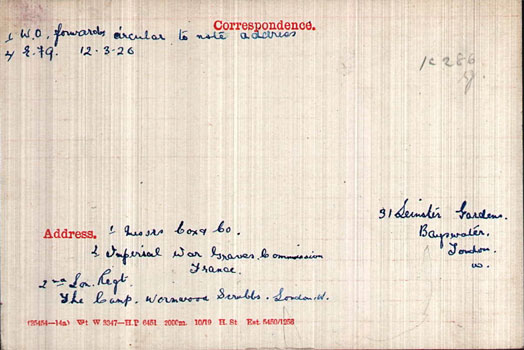 Correspondence.
1 W.O. forwards circular to note address
4 E.79. 12.3.26
K 286
Address. 1 Messrs Cox & Co.
2 Imperial War Graves Commission
France.
2nd Lon. Regt.
The Camp. Wormwood Scrubbs. London. W.
31 Leinster Gardens.
Bayswater.
London.
W.
(25454—14a) Wt W 3347—H.P 6451 2000m. 10/19 H. St Est. 5450/1256